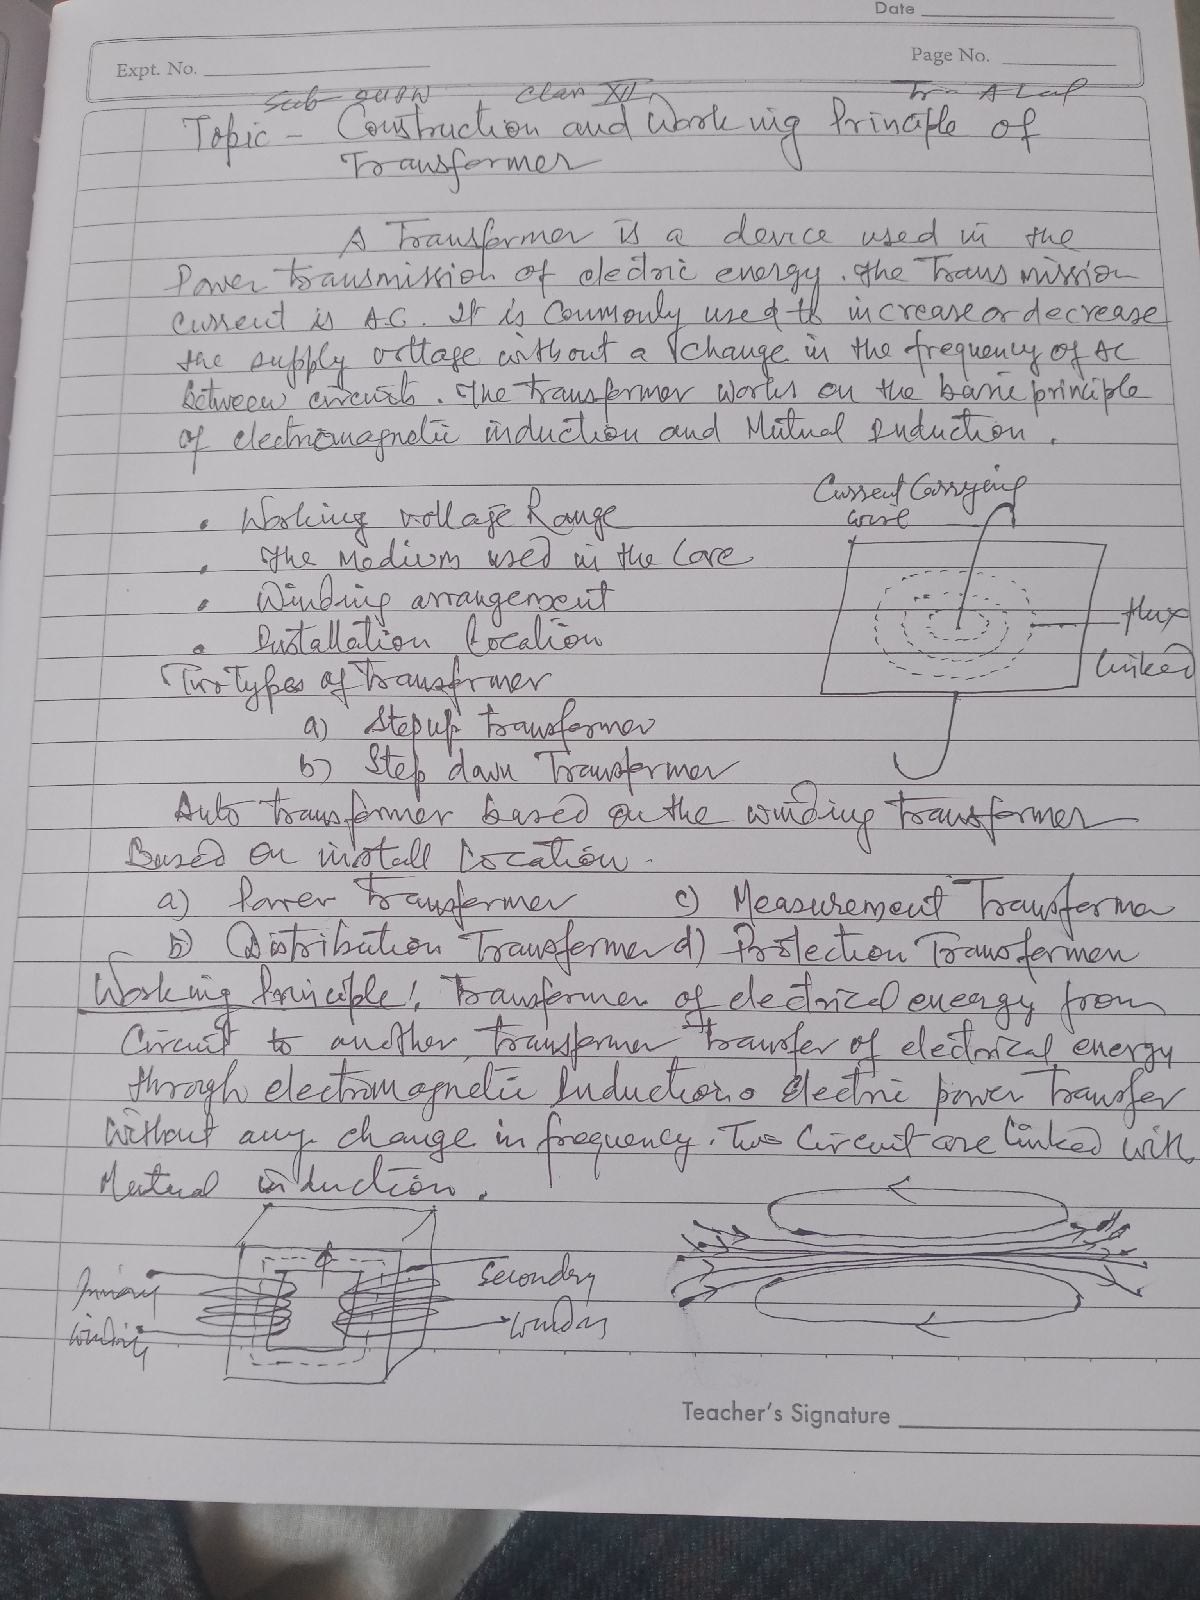 Date
Expt. No.
Page No.
Sub Class XII
Topic - Construction and Working Principle of
Transformer
A Transformer is a device used in the
Power transmission of electric energy. The Transmission
current is A.C. It is Commonly used to increase or decrease
the supply voltage without a change in the frequency of AC
between circuits. The transformer works on the basic principle
of electromagnetic induction and Mutual Induction.
Current Carrying
wire
• Working voltage Range
• The Medium used in the Core
• Winding arrangement
• Installation Location
flux
linked
Two Types of Transformer
a) Step up transformer
b) Step down Transformer
Auto transformer based on the winding transformer
Based on install Location.
a) Power Transformer c) Measurement Transforme
b) Distribution Transformer d) Protection Transformer
Working Principle: Transformer of electrical energy from
Circuit to another, transformer transfer of electrical energy
through electromagnetic Induction. Electric power Transfer
without any change in frequency. Two Circuit are linked with
Mutual induction.
Primary
winding
Secondary
Teacher's Signature